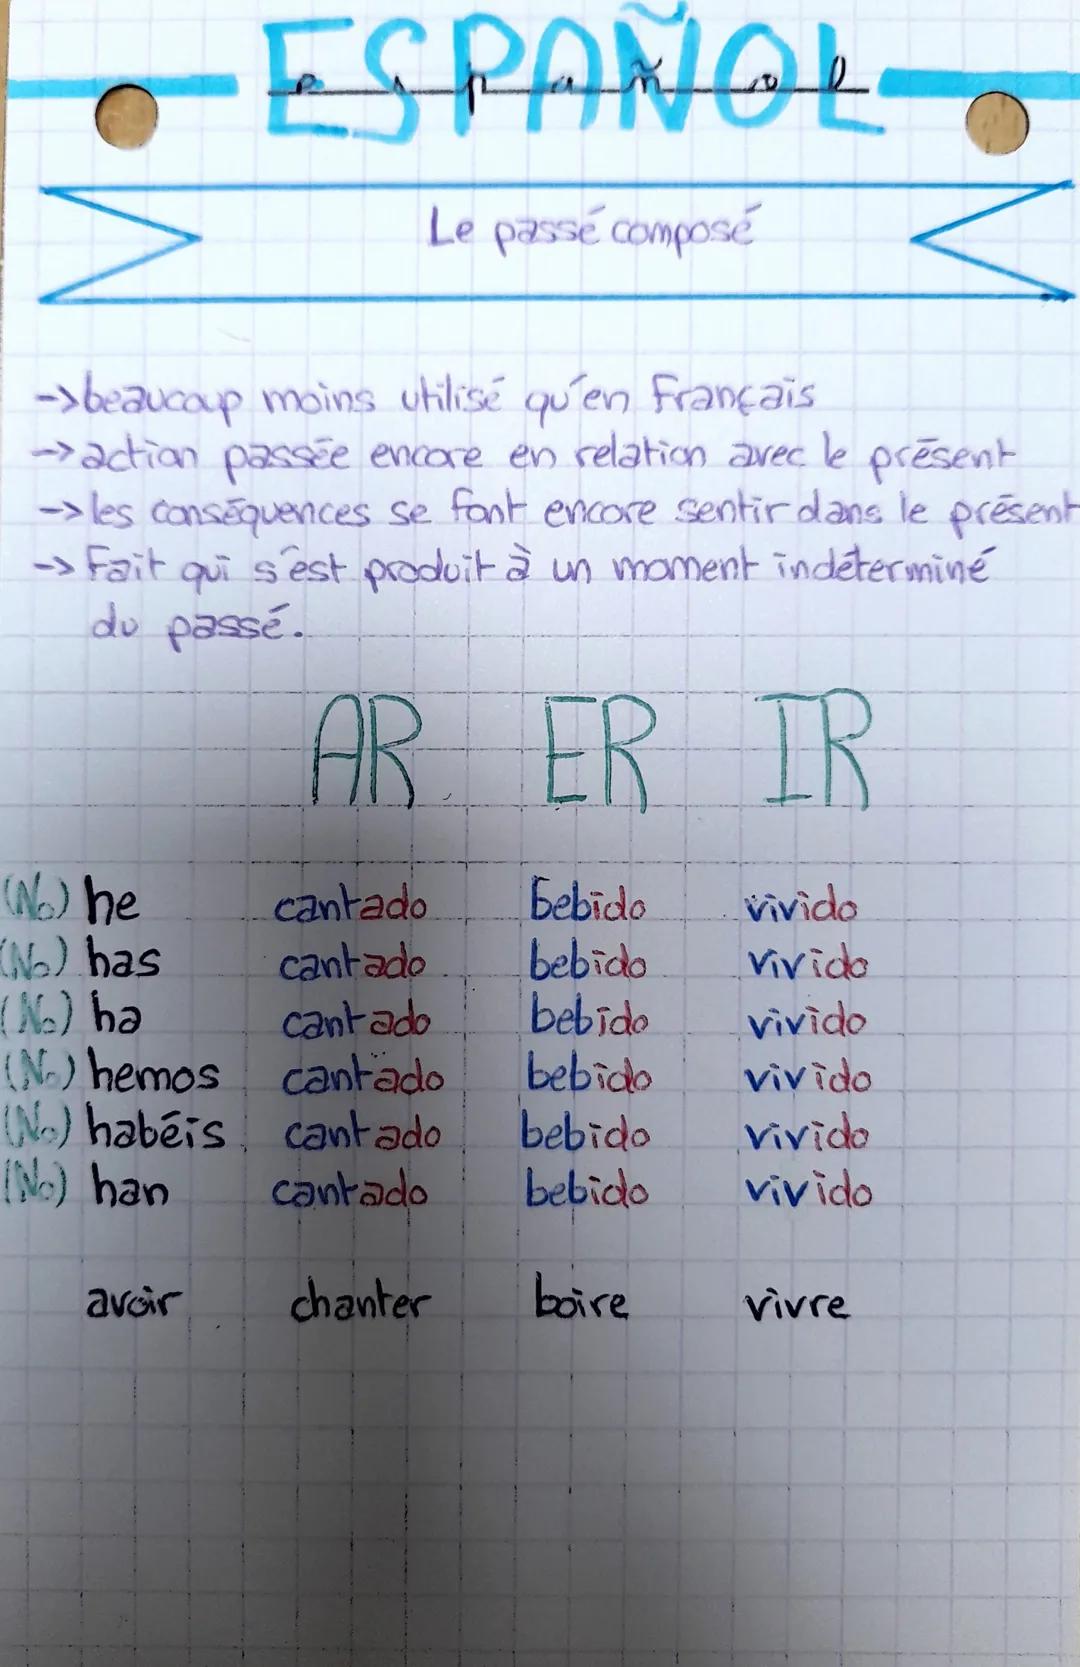 ESPAÑOL
español
Le passé composé
->beaucoup moins utilisé qu'en Français
->action passée encore en relation avec le présent
->les conséquences se font encore sentir dans le présent
->Fait qui s'est produit à un moment indéterminé
du passé.
AR ER IR
(No) he cantado bebido vivido
(No) has cantado bebido vivido
(No) ha cantado bebido vivido
(No) hemos cantado bebido vivido
(No) habéis cantado bebido vivido
(No) han cantado bebido vivido
avoir chanter boire vivre